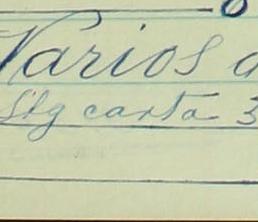 Varios a
Sbg carta 3